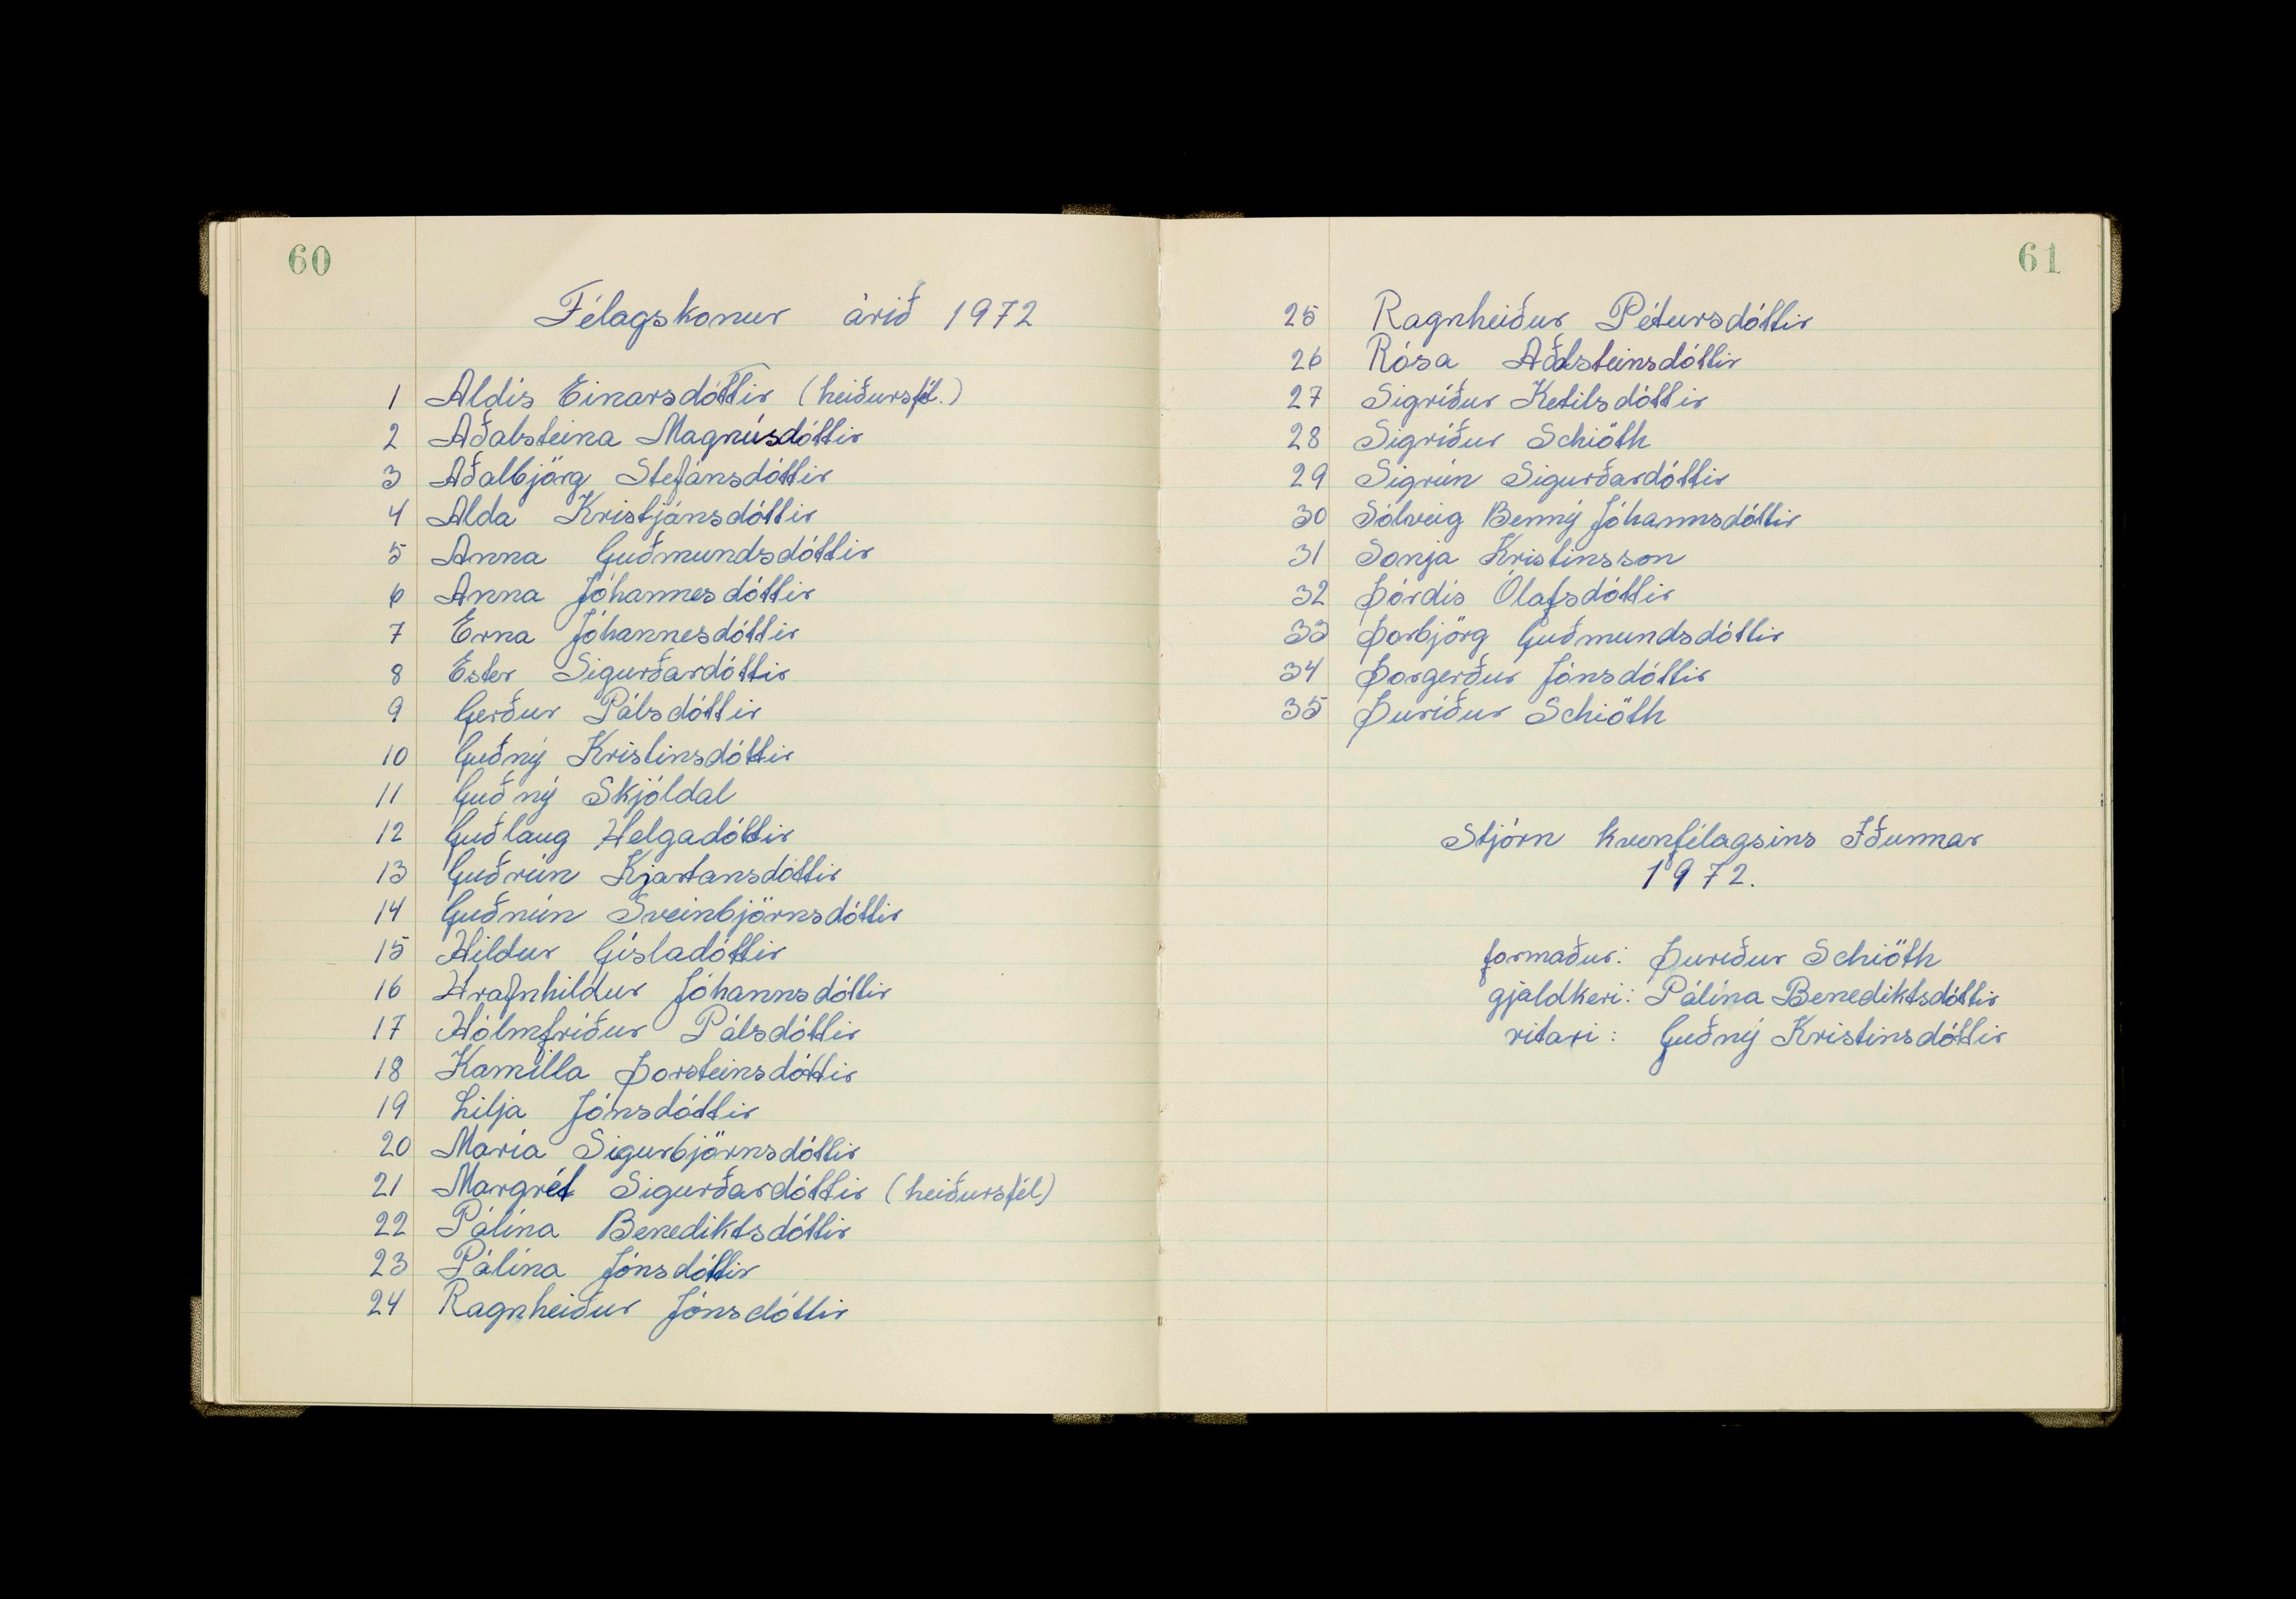 60
Félagskonur árið 1972
1 Aldís Einarsdóttir (heiðursfél.)
2 Aðalsteina Magnúsdóttir
3 Aðalbjörg Stefánsdóttir
4 Alda Kristjánsdóttir
5 Anna Guðmundsdóttir
6 Anna Jóhannesdóttir
7 Erna Jóhannesdóttir
8 Ester Sigurðardóttir
9 Gerður Pálsdóttir
10 Guðný Kristinsdóttir
11 Guðný Skjóldal
12 Guðlaug Helgadóttir
13 Guðrún Kjartansdóttir
14 Guðrún Sveinbjörnsdóttir
15 Hildur Gísladóttir
16 Hrafnhildur Jóhannsdóttir
17 Hólmfríður Pálsdóttir
18 Kamilla Þorsteinsdóttir
19 Lilja Jónsdóttir
20 María Sigurbjörnsdóttir
21 Margrét Sigurðardóttir (heiðursfél)
22 Pálína Benediktsdóttir
23 Pálína Jónsdóttir
24 Ragnheiður Jónsdóttir
61
25 Ragnheiður Pétursdóttir
26 Rósa Aðalsteinsdóttir
27 Sigríður Ketilsdóttir
28 Sigríður Schiöth
29 Sigrún Sigurðardóttir
30 Sólveig Benný Jóhannsdóttir
31 Sonja Kristinsson
32 Þórdís Ólafsdóttir
33 Þorbjörg Guðmundsdóttir
34 Þorgerður Jónsdóttir
35 Þuríður Schiöth
Stjórn kvenfélagsins Iðunnar
1972.
formaður: Þuríður Schiöth
gjaldkeri: Pálína Benediktsdóttir
ritari: Guðný Kristinsdóttir